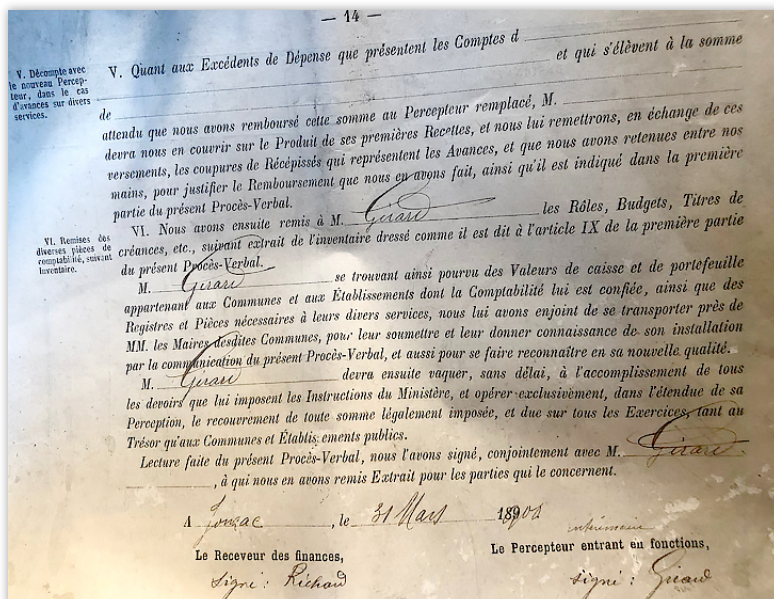 — 14 —
V. Décompte avec
le nouveau Percep-
teur, dans le cas
d'avances sur divers
services.
V. Quant aux Excédents de Dépense que présentent les Comptes d
et qui s'élèvent à la somme
de
attendu que nous avons remboursé cette somme au Percepteur remplacé, M.
devra nous en couvrir sur le Produit de ses premières Recettes, et nous lui remettrons, en échange de ces
versements, les coupures de Récépissés qui représentent les Avances, et que nous avons retenues entre nos
mains, pour justifier le Remboursement que nous en avons fait, ainsi qu'il est indiqué dans la première
partie du présent Procès-Verbal.
VI. Remises des
diverses pièces de
comptabilité, suivant
Inventaire.
VI. Nous avons ensuite remis à M. Girard les Rôles, Budgets, Titres de
créances, etc., suivant extrait de l'inventaire dressé comme il est dit à l'article IX de la première partie
du présent Procès-Verbal.
M. Girard se trouvant ainsi pourvu des Valeurs de caisse et de portefeuille
appartenant aux Communes et aux Établissements dont la Comptabilité lui est confiée, ainsi que des
Registres et Pièces nécessaires à leurs divers services, nous lui avons enjoint de se transporter près de
MM. les Maires desdites Communes, pour leur soumettre et leur donner connaissance de son installation
par la communication du présent Procès-Verbal, et aussi pour se faire reconnaître en sa nouvelle qualité.
M. Girard devra ensuite vaquer, sans délai, à l'accomplissement de tous
les devoirs que lui imposent les Instructions du Ministère, et opérer exclusivement, dans l'étendue de sa
Perception, le recouvrement de toute somme légalement imposée, et due sur tous les Exercices, tant au
Trésor qu'aux Communes et Établis ements publics.
Lecture faite du présent Procès-Verbal, nous l'avons signé, conjointement avec M. Girard.
, à qui nous en avons remis Extrait pour les parties qui le concernent.
A Jonzac, le 31 Mars 1900
intérimaire
Le Receveur des finances,
Le Percepteur entrant en fonctions,
signé : Richard
signé : Girard